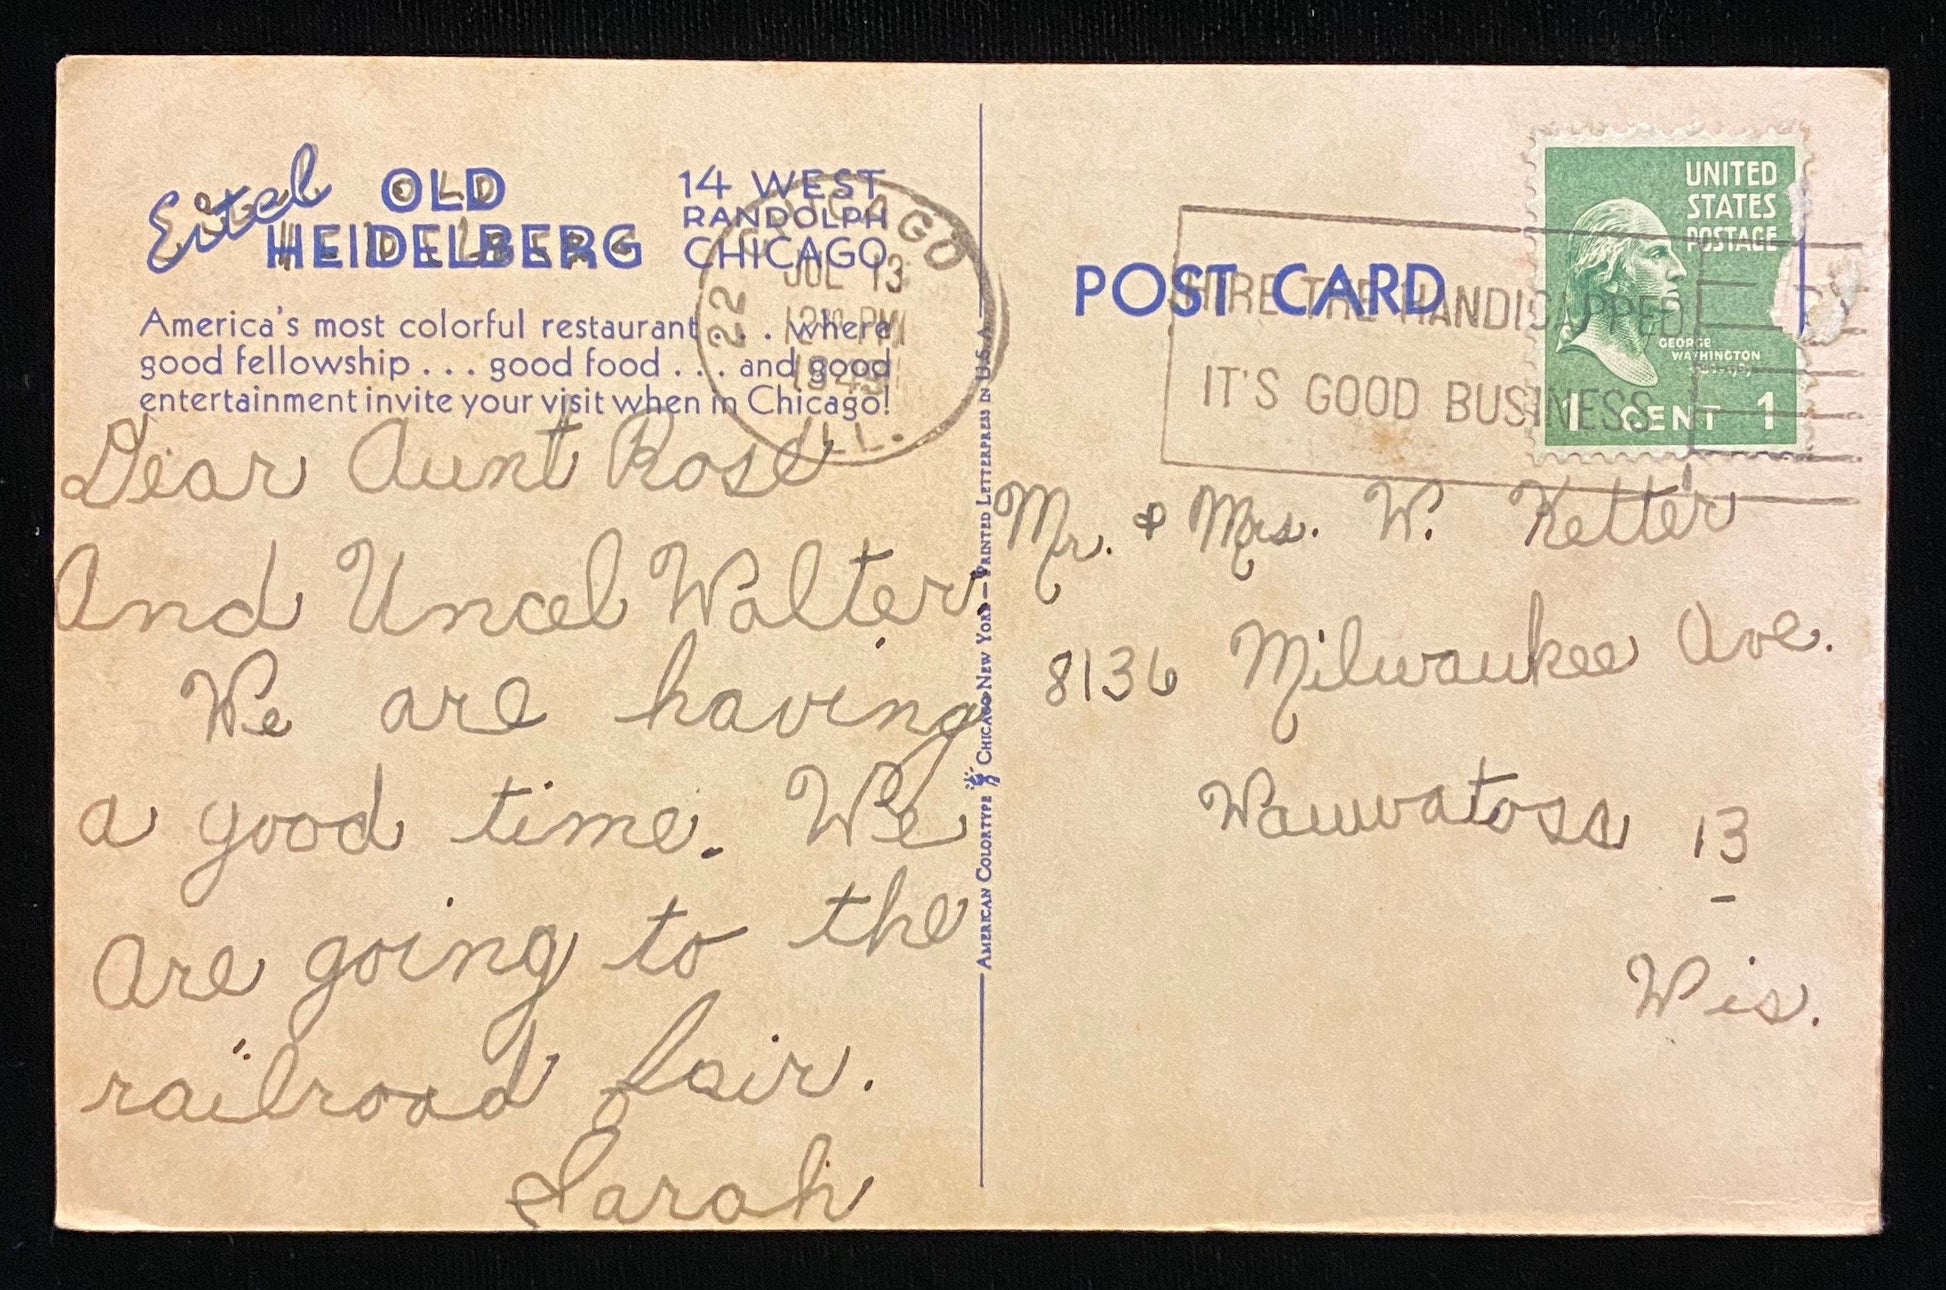 Eitel OLD HEIDELBERG
14 WEST
RANDOLPH
CHICAGO
America's most colorful restaurant . . . where
good fellowship . . . good food . . . and good
entertainment invite your visit when in Chicago!
CHICAGO
22
JUL 13
12 PM
1949
ILL.
Dear Aunt Rose
And Uncel Walter,
We are having
a good time. We
are going to the
railroad fair.
Sarah
AMERICAN COLORTYPE CHICAGO-NEW YORK — PRINTED LETTERPRESS IN U.S.A.
POST CARD
HIRE THE HANDICAPPED
IT'S GOOD BUSINESS
UNITED
STATES
POSTAGE
GEORGE
WASHINGTON
1 CENT 1
Mr. & Mrs. W. Ketter
8136 Milwaukee Ave.
Wauwatosa 13
Wis.